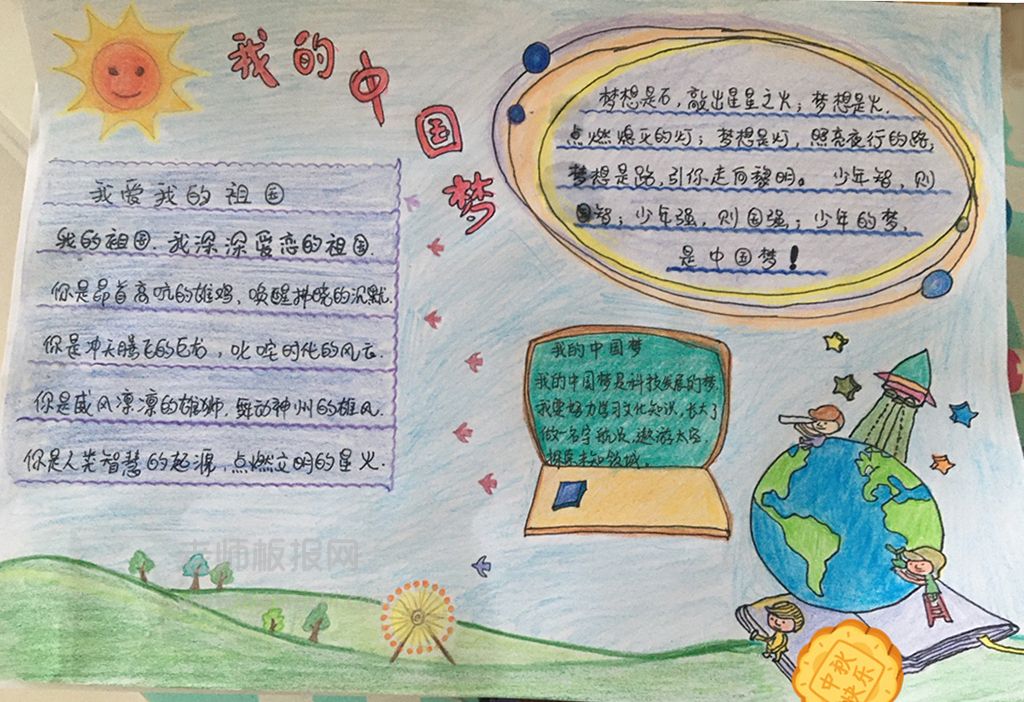 我的中国梦
我爱我的祖国
我的祖国.我深深爱恋的祖国.
你是昂首高吭的雄鸡,唤醒拂晓的沉默.
你是冲天腾飞的巨龙,叱咤时代的风云.
你是威风凛凛的雄狮,舞动神州的雄风.
你是人类智慧的起源,点燃文明的星火.
梦想是石,敲出星星之火;梦想是火.
点燃熄灭的灯;梦想是灯,照亮夜行的路;
梦想是路,引你走向黎明。 少年智,则
国智;少年强,则国强;少年的梦,
是中国梦!
我的中国梦
我的中国梦是科技发展的梦.
我要努力学习文化知识,长大了
做一名宇航员,遨游太空.
探索未知领域。
老师板报网
中秋
快乐